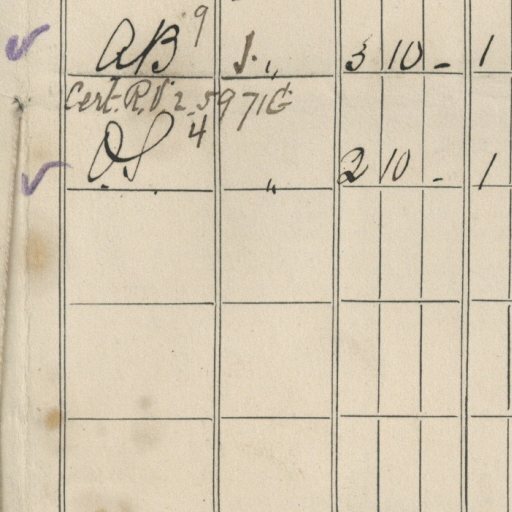 AB 9 J. " 3 10 - 1
Cert. R.V. 2.5971G
O.S. 4 " 2 10 - 1